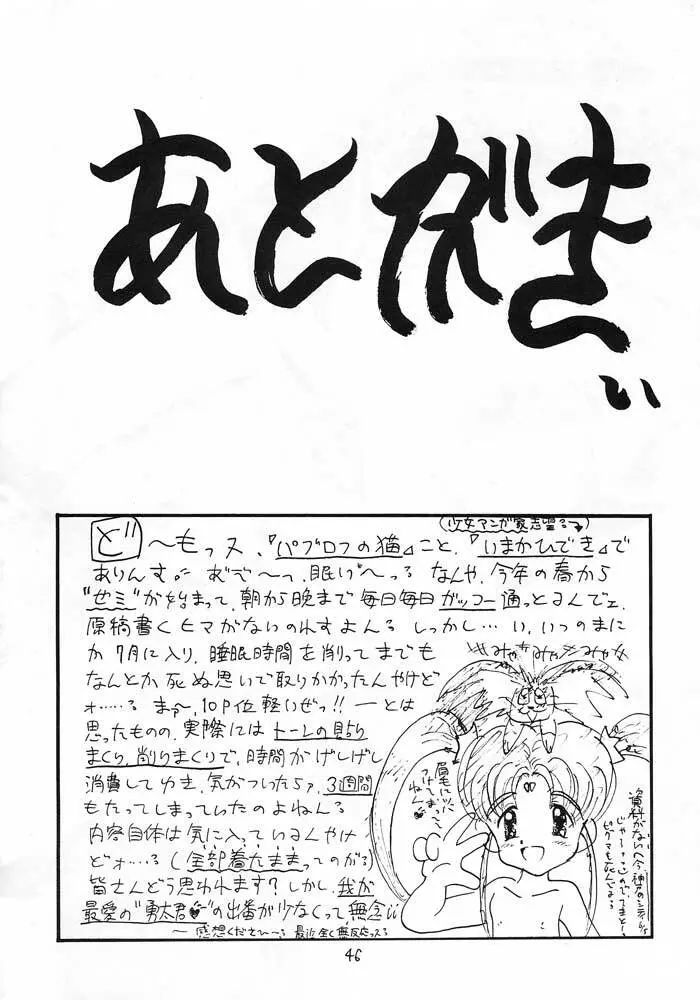 あとがき
い
(少女マンガ家志望る→)
ど〜もっス、『パブロフの猫』こと、『いまかひでき』で
ありんす。 おでで〜っ、眠い〜っる なんや、今年の春から
"ゼミ"が始まって、朝から晩まで毎日毎日ガッコー通っとるんでェ、
原稿書くヒマがないのれすよんる しっかし…い、いつのまに
か7月に入り、睡眠時間を削ってまでも
なんとか死ぬ思いで取りかかったんやけど
ォ……る まぁ〜、10P位軽いぜっ!! ーとは
思ったものの、実際にはトーンの貼り
まくり、削りまくりで、時間がげしげし
消費してゆき、気がついたらァ、3週間
もたってしまっていたのよねんる
内容自体は気に入っているんやけ
どォ…る(全部着たままってのがる)
皆さんどう思われます?しかし、我が
最愛の"勇太君♥"の出番が少なくって、無念
〜感想くださひ〜る 最近全く無反応っスる
みゃみゃみゃみゃ
眉毛に
つけてまって
ねん
資料がない
46